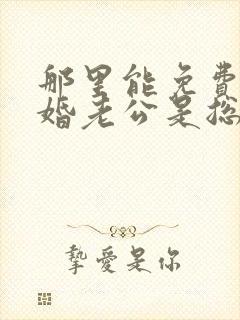 那里能免費
婚老公是总
挚愛是你